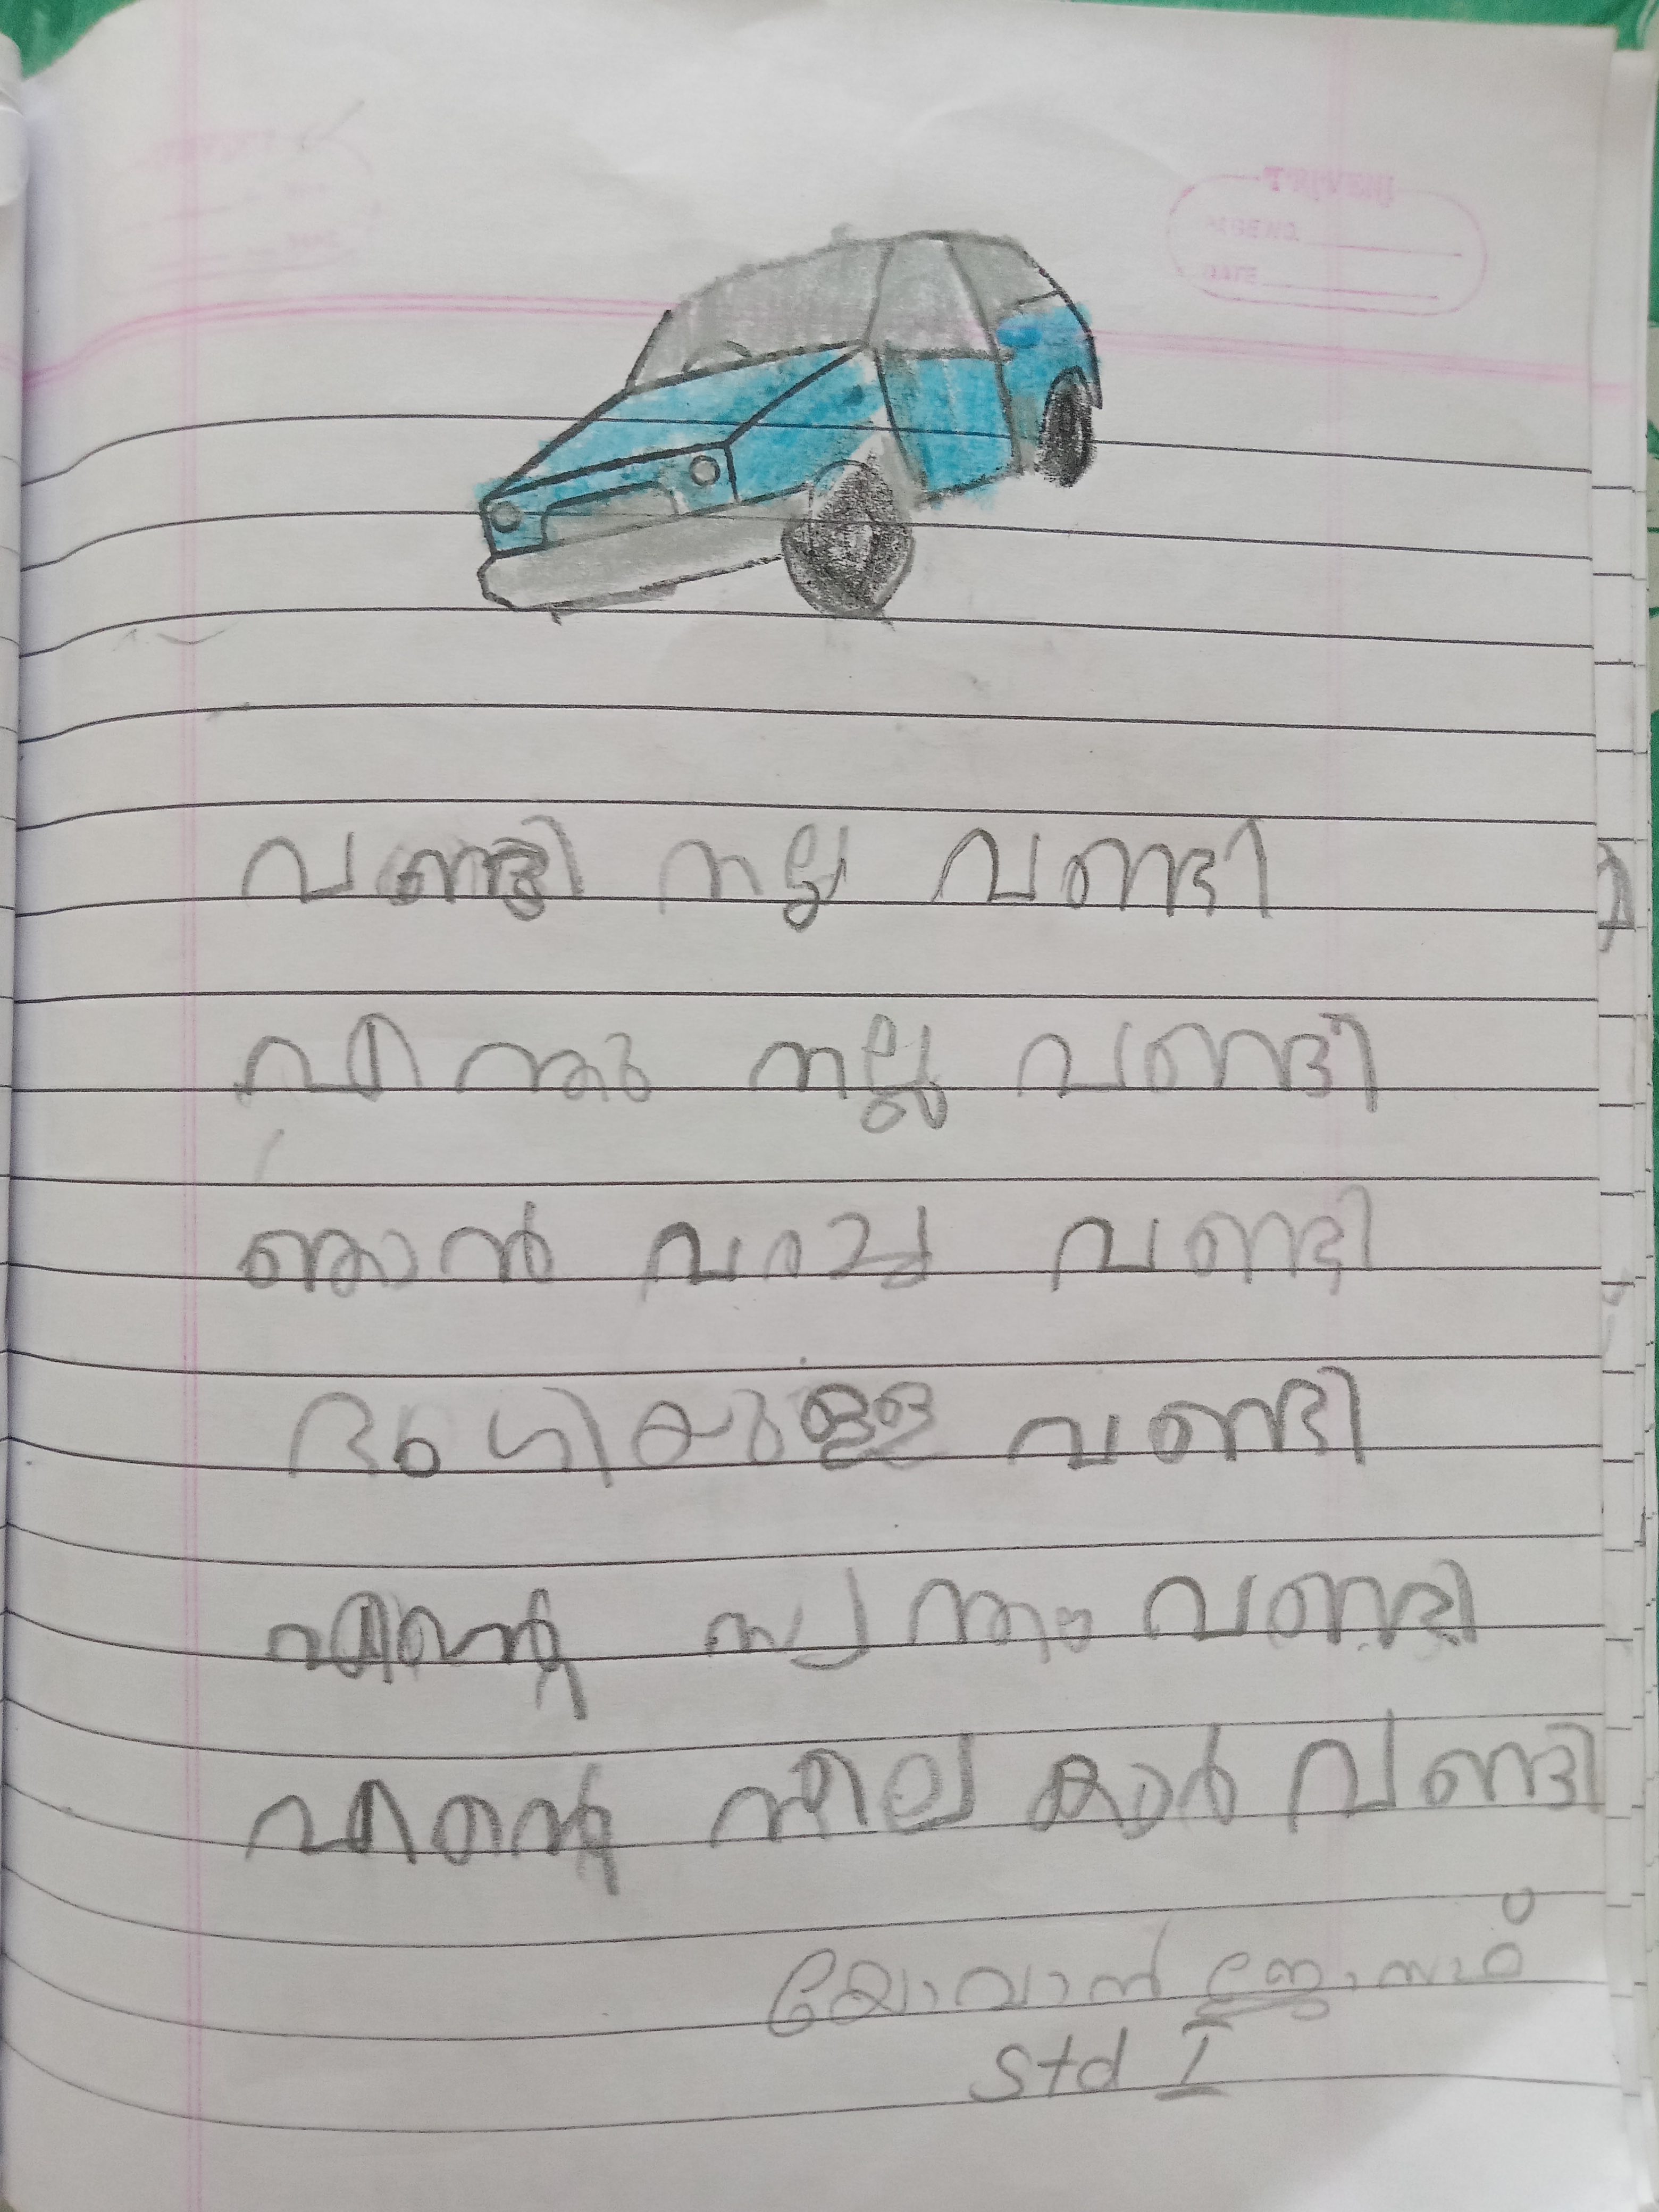 വണ്ടി നല്ല വണ്ടി
എന്തു നല്ല വണ്ടി
ഞാൻ വരച്ച വണ്ടി
ഭംഗിയുള്ള വണ്ടി
എന്റെ സ്വന്തം വണ്ടി
എന്റെ നീല കാർ വണ്ടി
യോവാൻ ജോസഫ്
std I